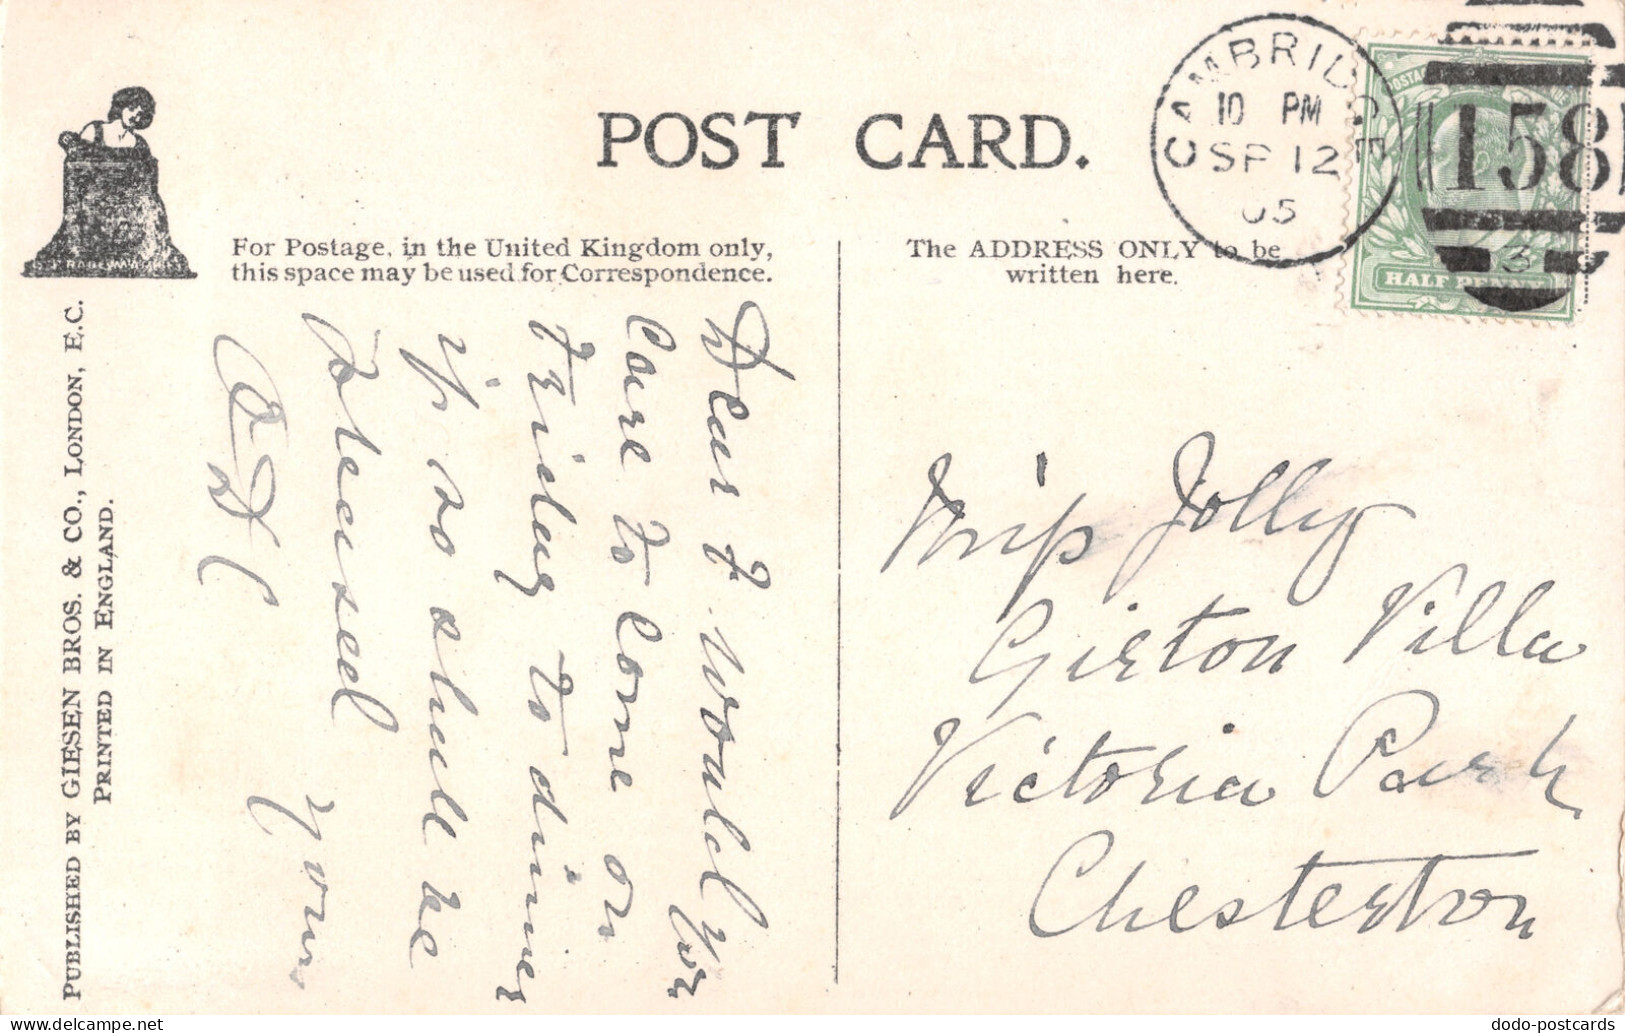 POST CARD.
For Postage, in the United Kingdom only,
this space may be used for Correspondence.
The ADDRESS ONLY to be
written here.
CAMBRIDGE
10 PM
SP 12
05
158
3
POSTAGE
HALF PENNY
PUBLISHED BY GIESEN BROS. & CO., LONDON, E.C.
PRINTED IN ENGLAND.
TRADE MARK
Dear F. Would you
Care to Come on
Friday to dinner
if so shall be
pleased Yours
Miss Jolly
Girton Villa
Victoria Park
Chesterton
dodo-postcards